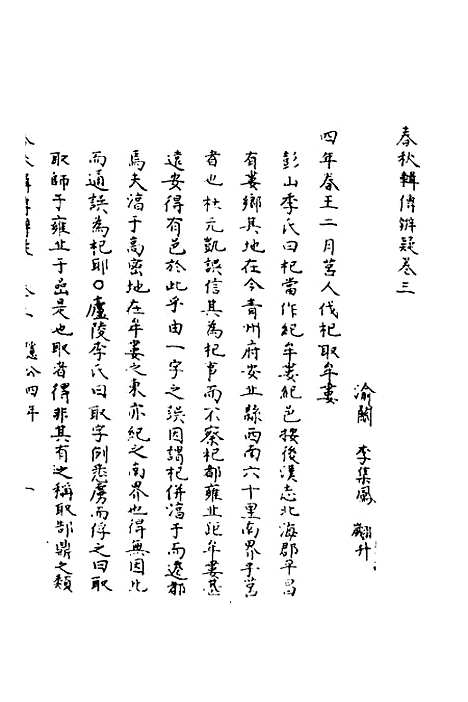 春秋輯傳辨疑卷三
渝關 李集鳳 翽升
四年春王二月莒人伐杞取牟婁
彭山李氏曰杞當作紀牟婁紀邑按後漢志北海郡平昌
有婁鄉其地在今青州府安丘縣西南六十里南界于莒
者也杜元凱誤信其為杞事而不察杞都雍丘距牟婁甚
遠安得有邑於此乎由一字之誤因謂杞併淳于而遷都
焉夫淳于高密地在牟婁之東亦紀之南界也得無因此
而通誤為杞耶○廬陵李氏曰取字例悉虜而俘之曰取
取師于雍丘于嵒是也取者得非其有之稱取郜鼎之類
春秋輯傳辨疑 卷三 隱公四年 一